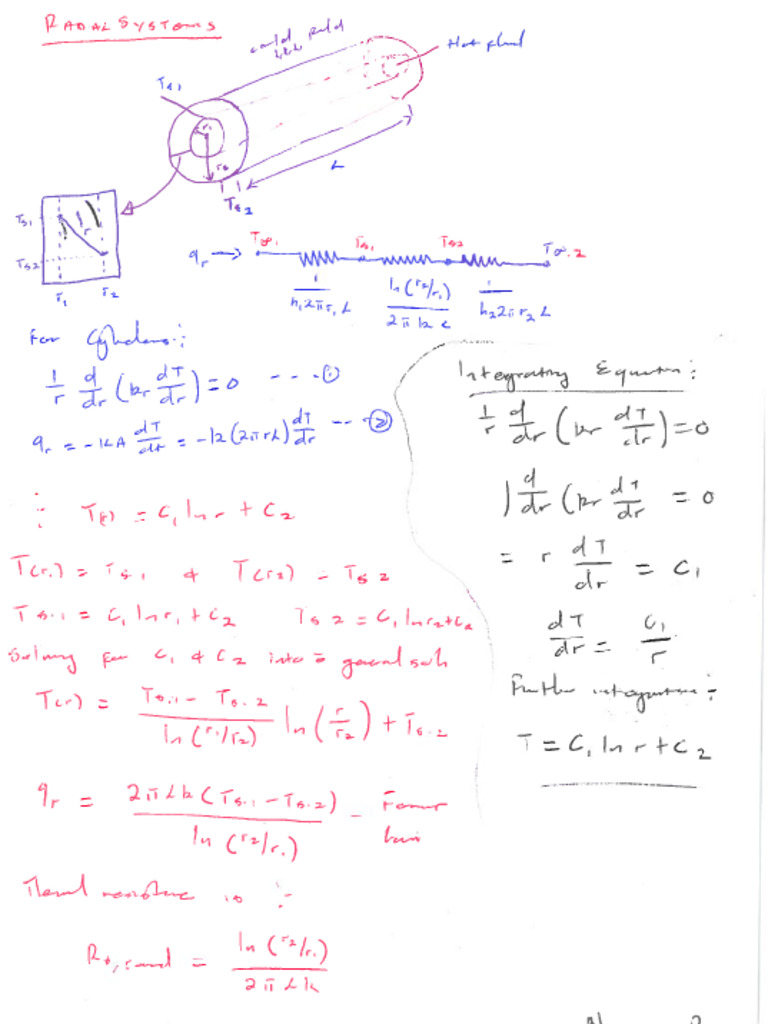 RADIAL SYSTEMS
could fluid
h,L,L
Hot fluid
Ts,1
r1
r2
L
Ts2
Ts1
Ts2
r
r1 r2
qr → T∞,1 Ts1 Ts2 T∞,2
1/(h1 2πr1 L) ln(r2/r1)/(2πkL) 1/(h2 2πr2 L)
For Cylinders:
1/r d/dr (kr dT/dr) = 0 ---- ①
qr = -kA dT/dr = -k(2πrL) dT/dr --- ②
∴ T(r) = C1 ln r + C2
T(r1) = Ts1 & T(r2) = Ts2
Ts.1 = C1 ln r1 + C2 Ts2 = C1 ln r2 + C2
Solving for C1 & C2 into = general soln
T(r) = (Ts.1 - Ts.2)/ln(r1/r2) ln(r/r2) + Ts.2
qr = 2πLk(Ts.1 - Ts.2)/ln(r2/r1) - Fourier law
Thermal resistance is :-
Rt,cond = ln(r2/r1)/(2πLk)
Integrating Equation:
1/r d/dr (kr dT/dr) = 0
∫ d/dr (kr dT/dr = 0
= r dT/dr = C1
dT/dr = C1/r
Further integration :-
T = C1 ln r + C2